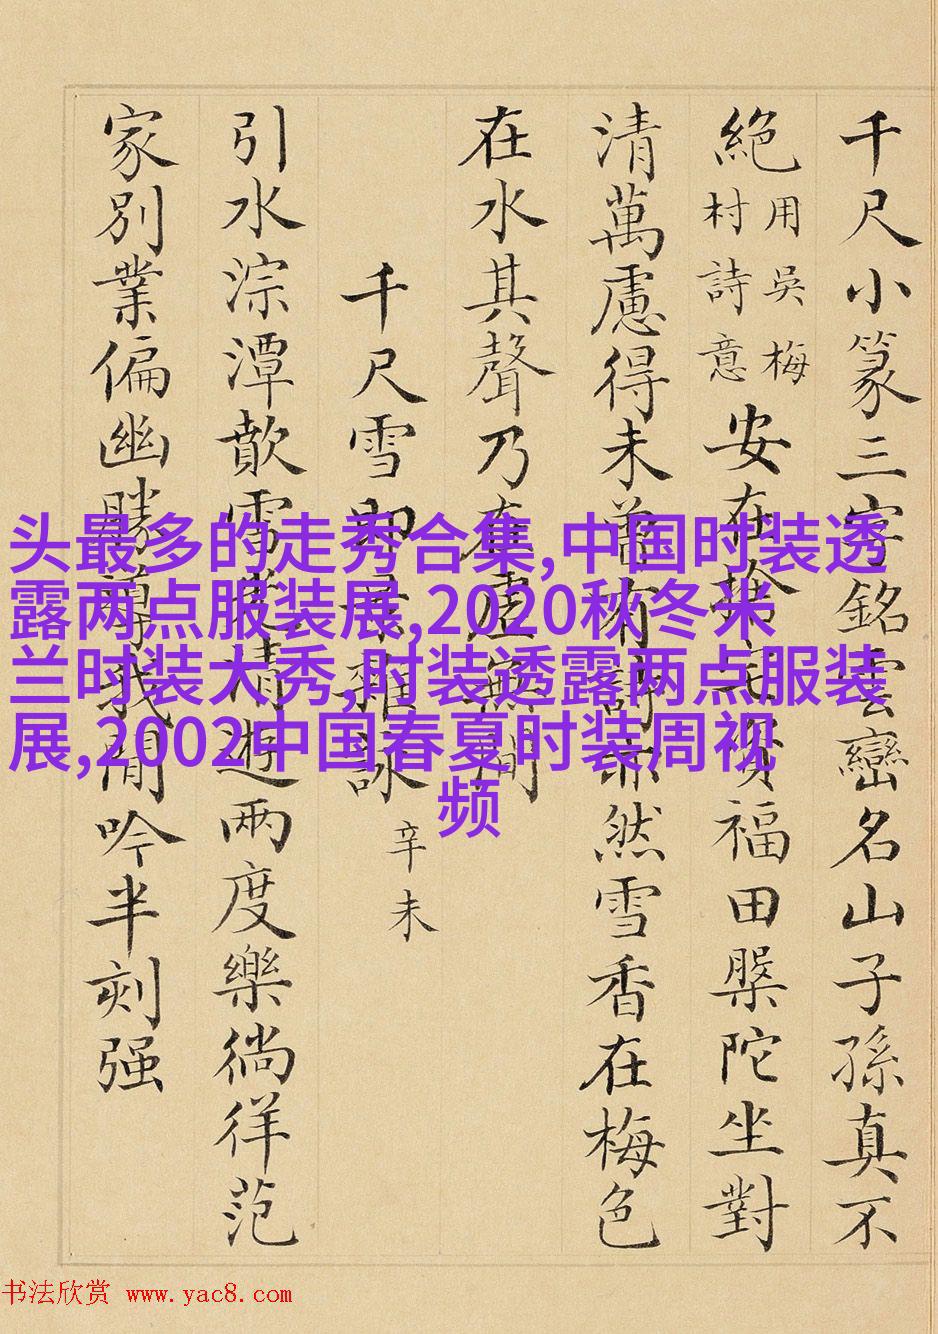 千尺小篆三字銘雲巒名山子孫真不
絕用吳梅村詩意安在賢福田槃陀坐對
清萬慮得未然雪香在梅色
在水其聲乃在虛無間
千尺雪即景雜詠辛未
引水淙潭歕雪遊兩度樂徜徉范
家別業偏幽勝我閒吟半刻强
头最多的走秀合集,中国时装透
露两点服装展,2020秋冬米
兰时装大秀,时装透露两点服装
展,2002中国春夏时装周视
频
书法欣赏 www.yac8.com